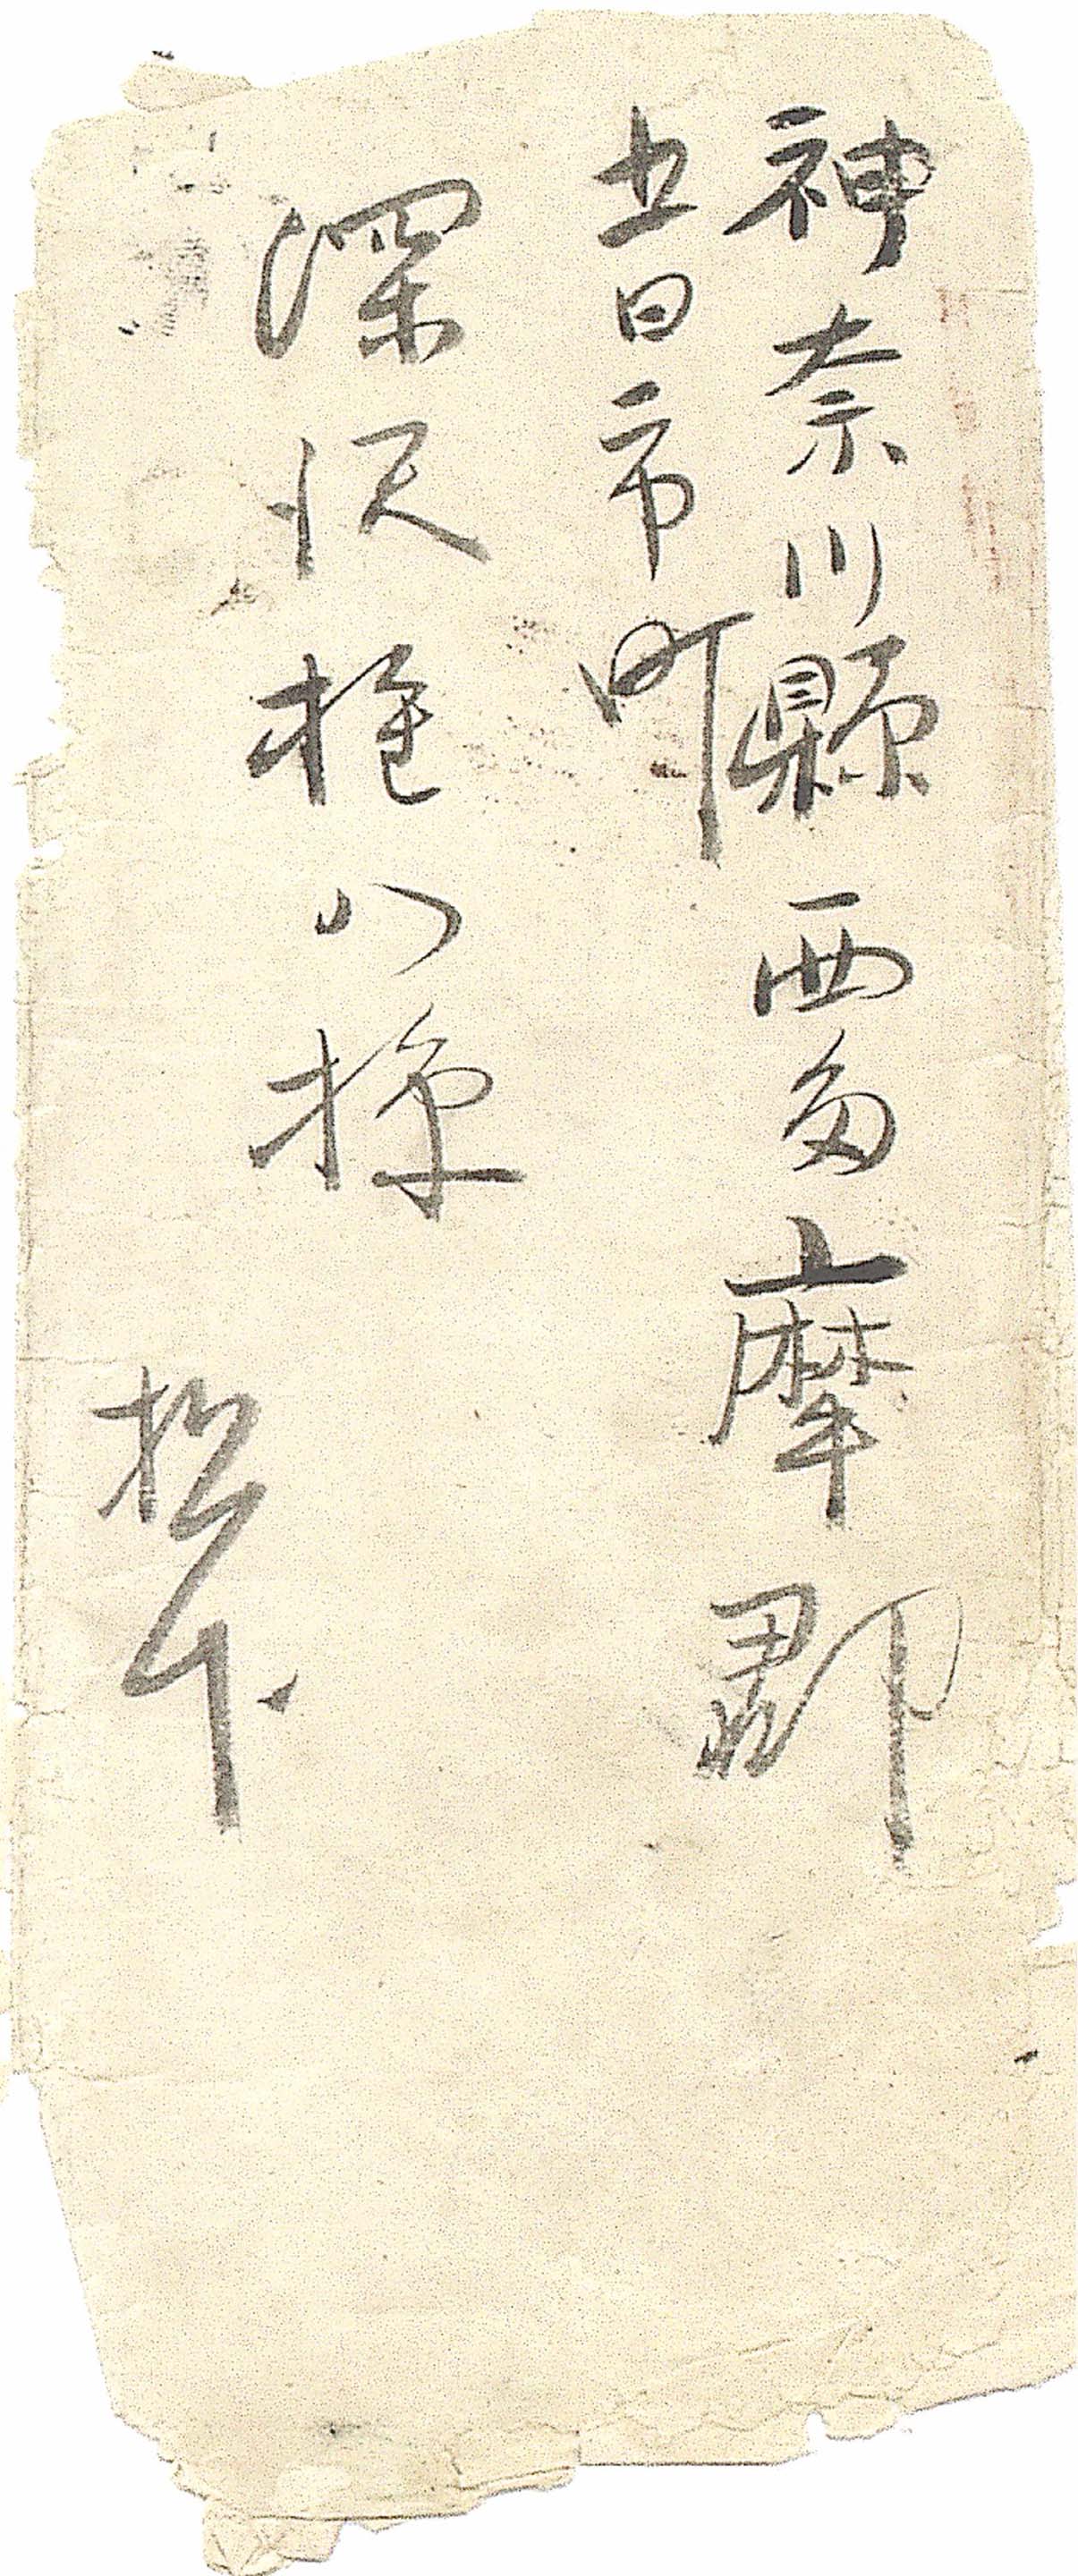 神奈川縣西多摩郡
五日市町
深沢権八様
机下